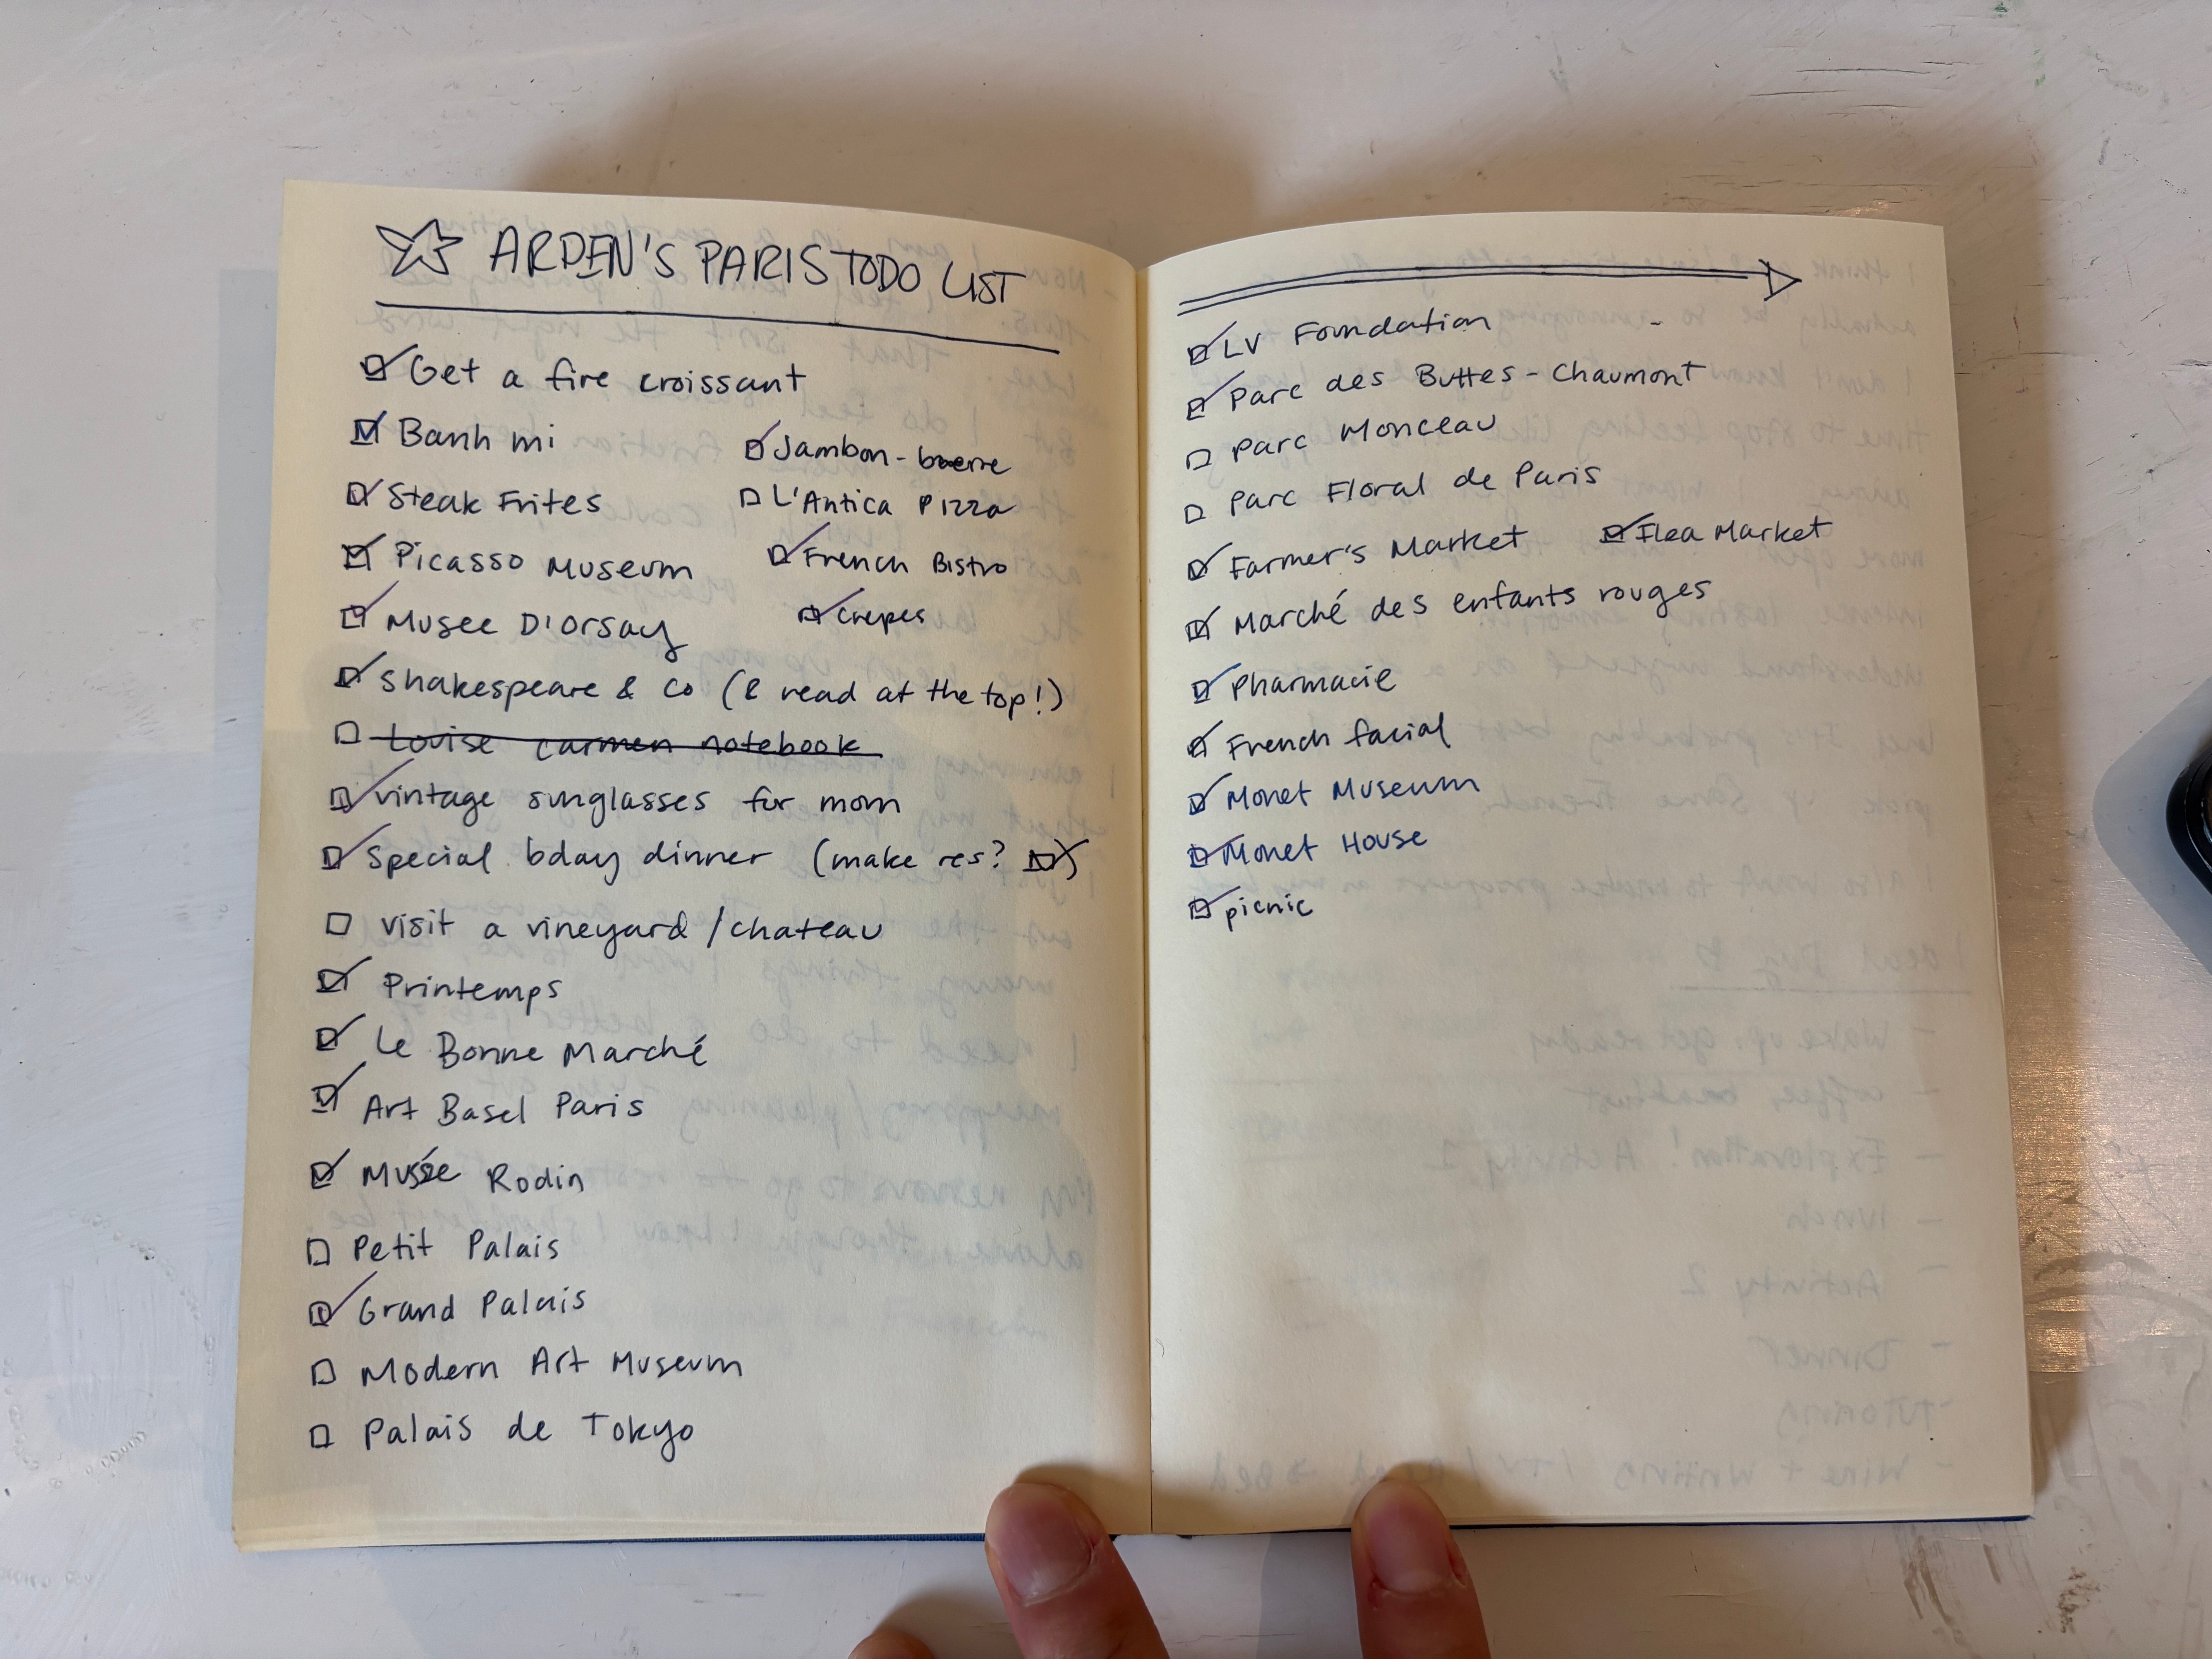 ARDEN'S PARIS TODO LIST
Get a fire croissant
Banh mi
Jambon-buerre
Steak Frites
L'Antica Pizza
Picasso Museum
French Bistro
Musee D'Orsay
Crepes
Shakespeare & Co (& read at the top!)
Louise carmen notebook
vintage sunglasses for mom
Special bday dinner (make res? )
visit a vineyard/chateau
Printemps
Le Bonne Marché
Art Basel Paris
Musée Rodin
Petit Palais
Grand Palais
Modern Art Museum
Palais de Tokyo
LV Foundation
Parc des Buttes-Chaumont
Parc Monceau
Parc Floral de Paris
Farmer's Market
Flea Market
Marché des enfants rouges
Pharmacie
French facial
Monet Museum
Monet House
picnic